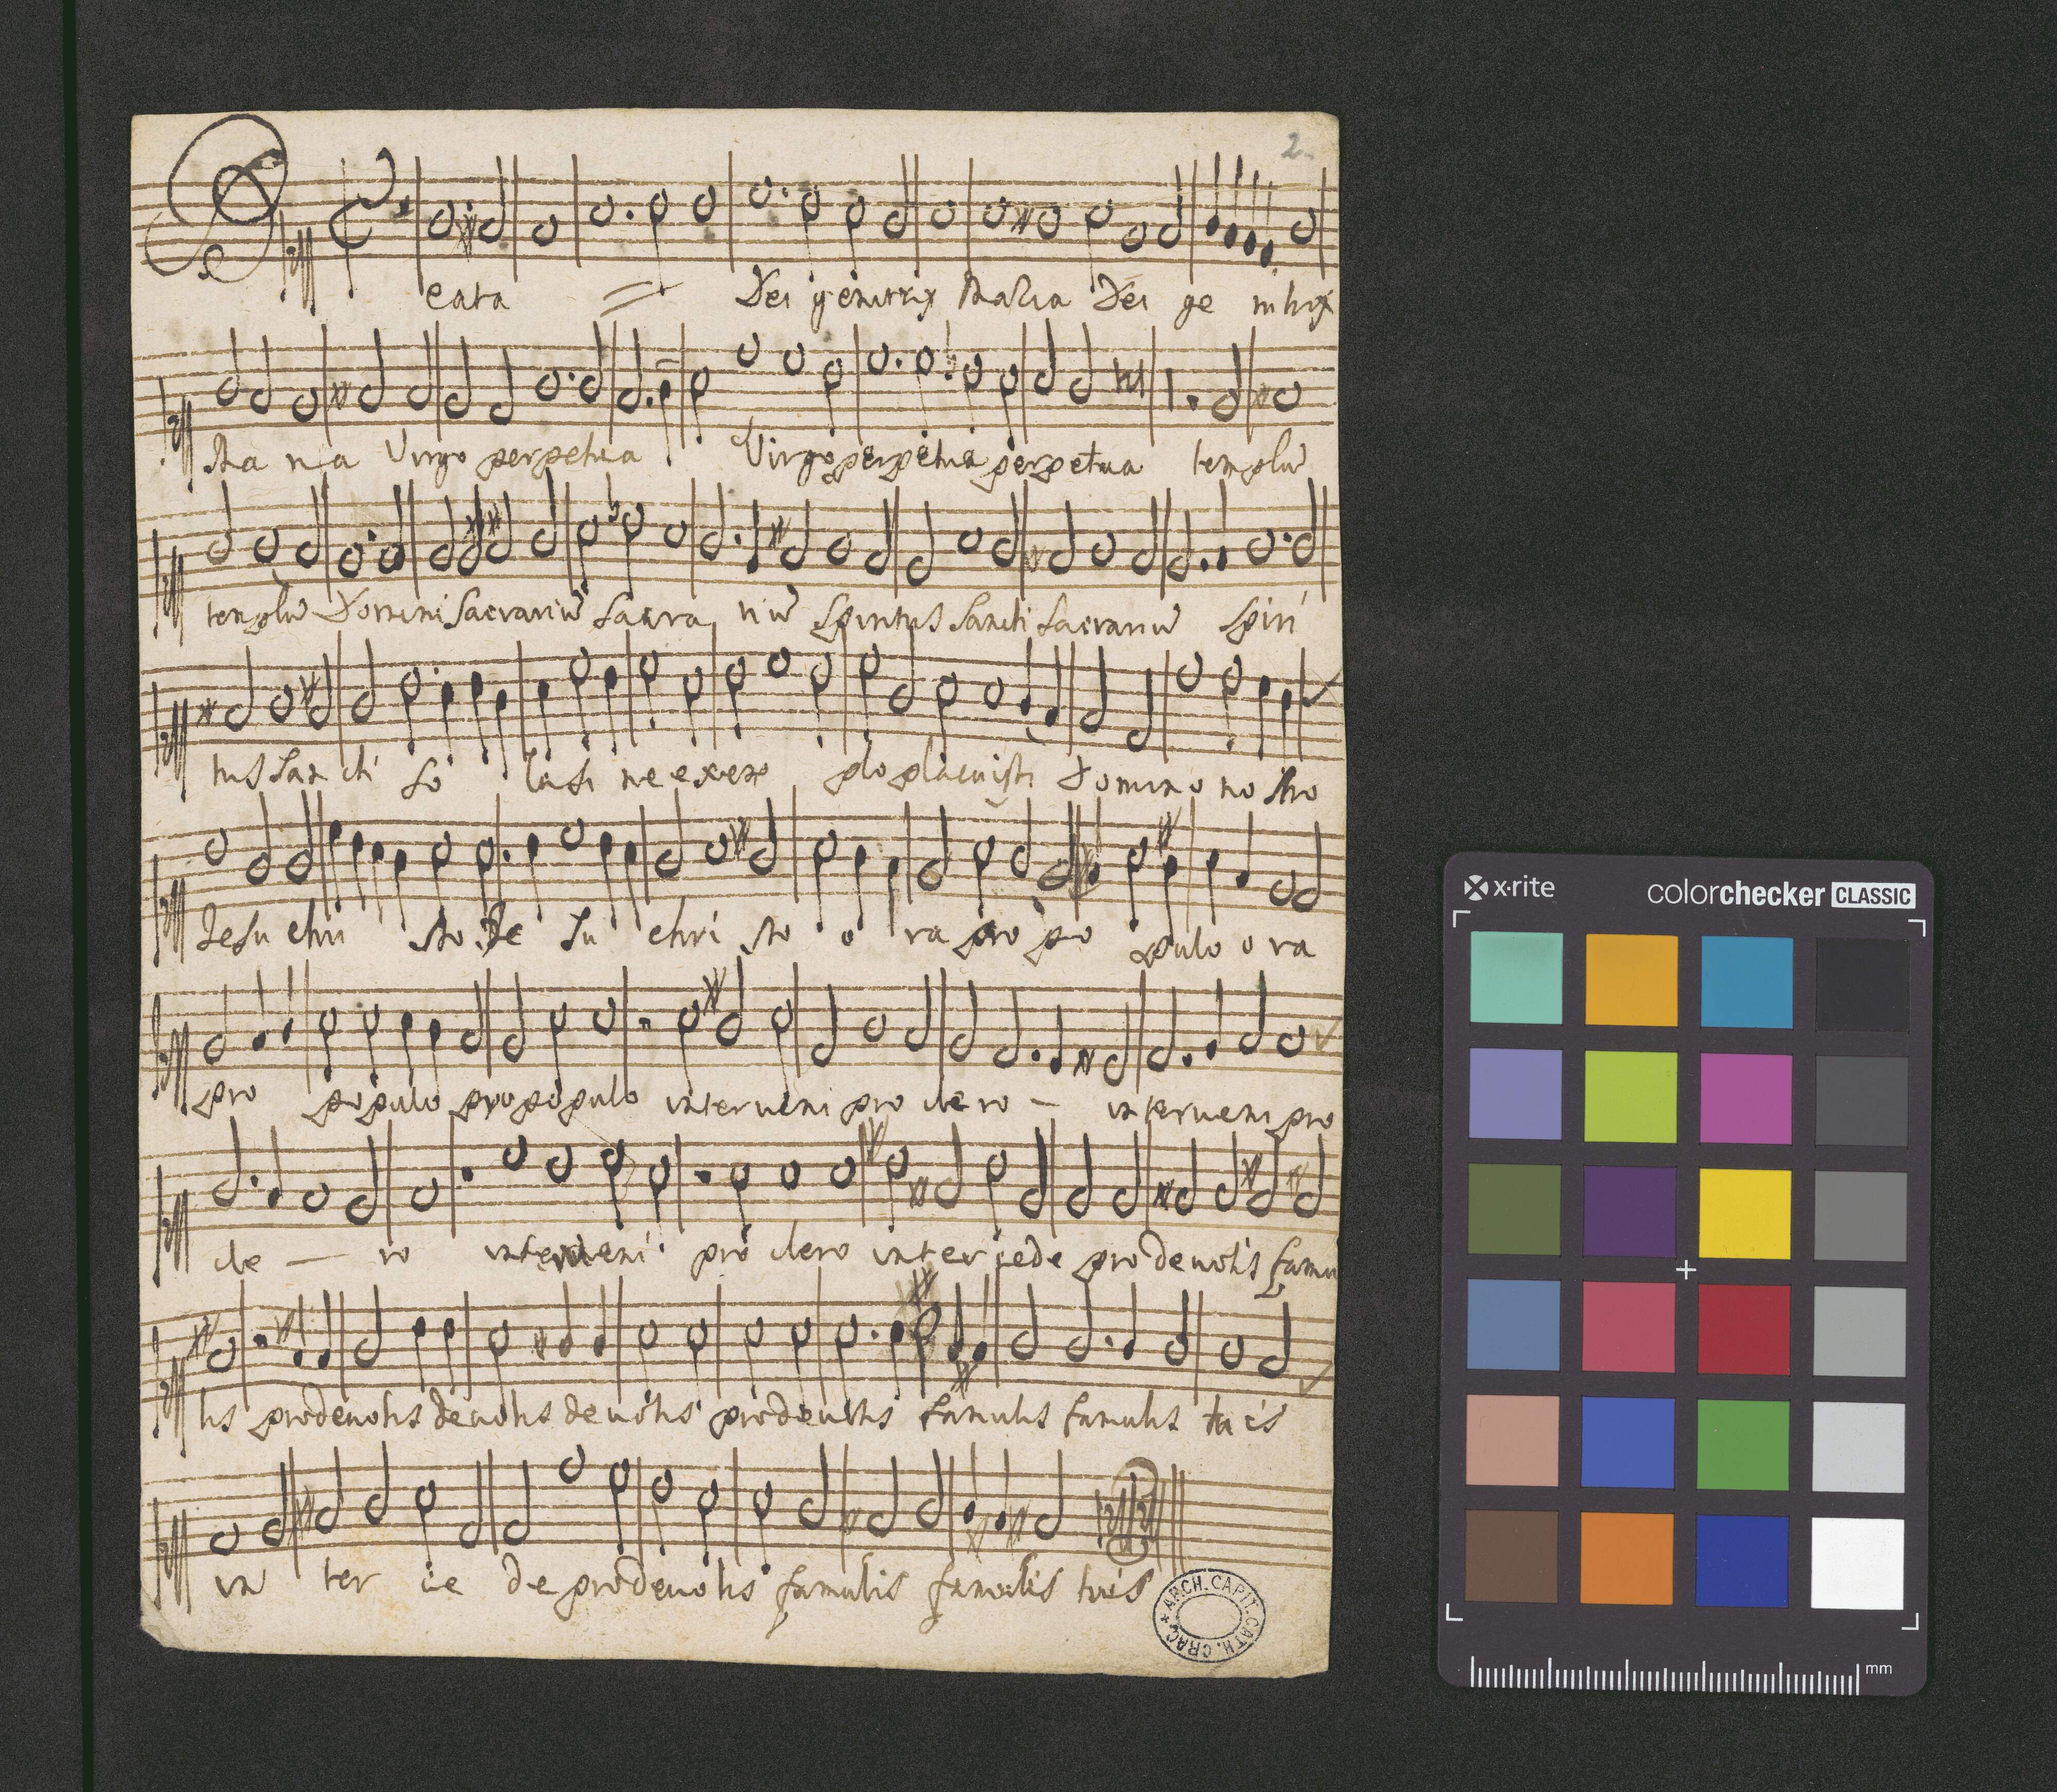 2.
Beata = Dei genitrix Maria Dei ge nitrix
Ma ri a Virgo perpetua Virgo perpetua perpetua templũ
templũ Domini Sacrariũ Sacra riũ Spiritus Sancti Sacrariũ Spiri
tus San cti So la si ne exem plo placuisti Domino no stro
Jesu Chri sto Je su Chri sto o ra pro po pulo o ra
pro populo pro populo interueni pro cle ro – interueni pro
cle – ro interueni pro clero inter cede pro deuotis famu
lis pro deuotis deuotis deuotis pro deuotis famulis famulis tu is
in ter ce de pro deuotis famulis famulis tuis
ARCH. CAPIT. CATH. CRAC.
x·rite colorchecker CLASSIC
mm